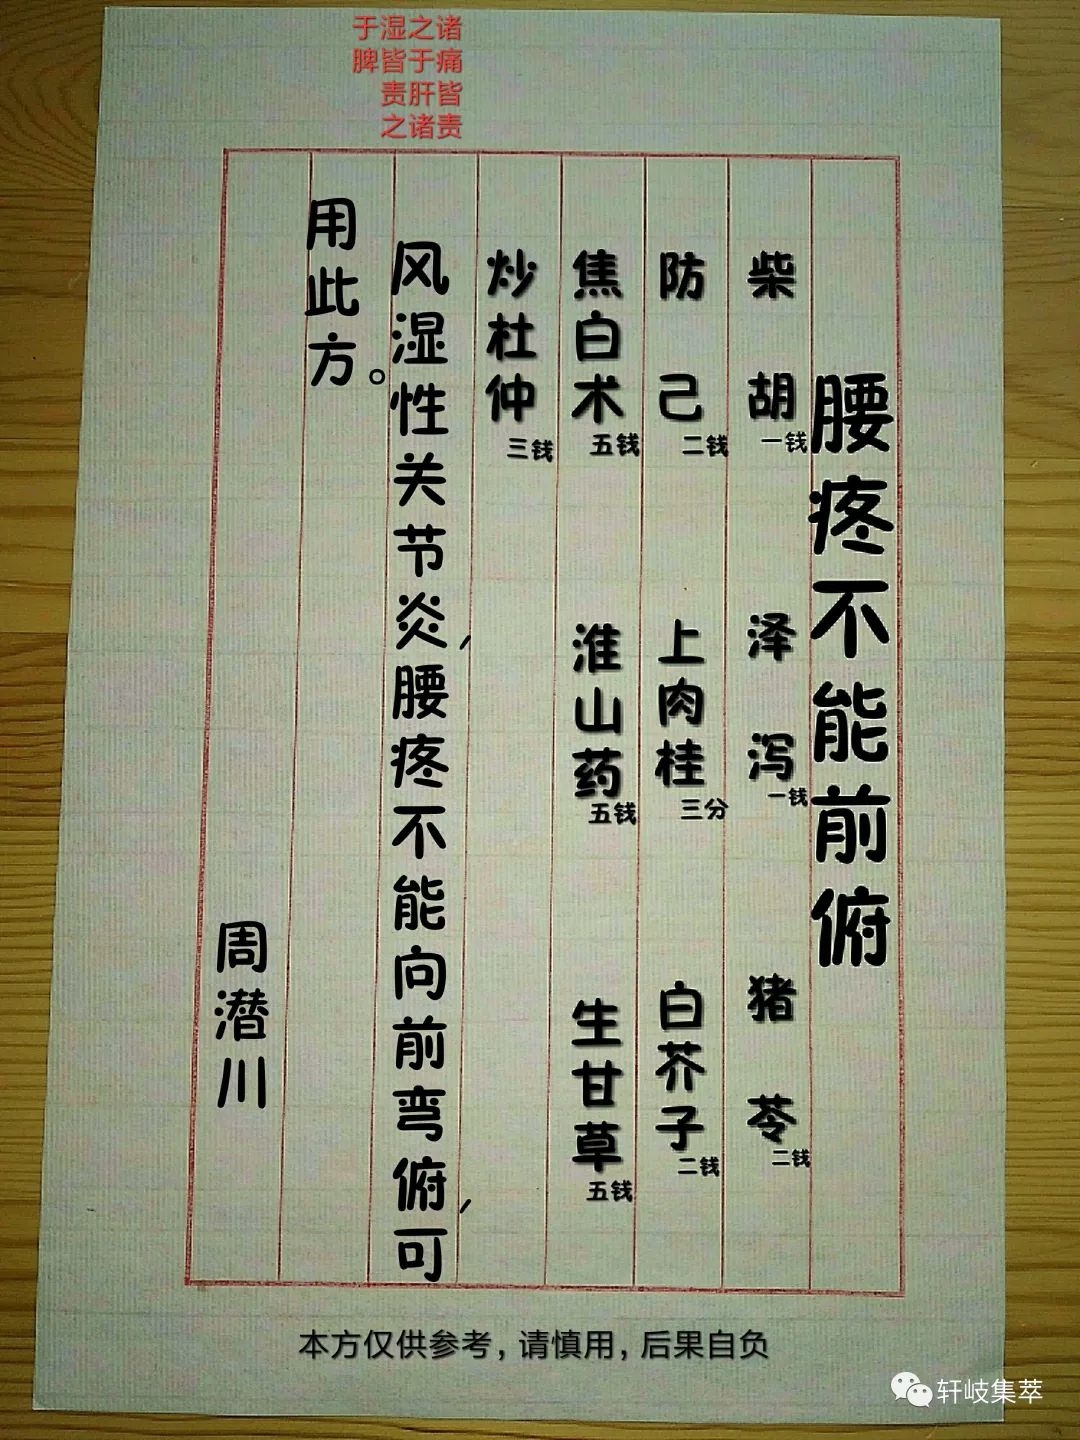 诸痛皆责
之于肝诸
湿皆责之
于脾
腰疼不能前俯
柴胡一钱 泽泻一钱 猪苓二钱
防己二钱 上肉桂三分 白芥子二钱
焦白术五钱 淮山药五钱 生甘草五钱
炒杜仲三钱
风湿性关节炎，腰疼不能向前弯俯，可
用此方。
周潜川
本方仅供参考，请慎用，后果自负
轩岐集萃